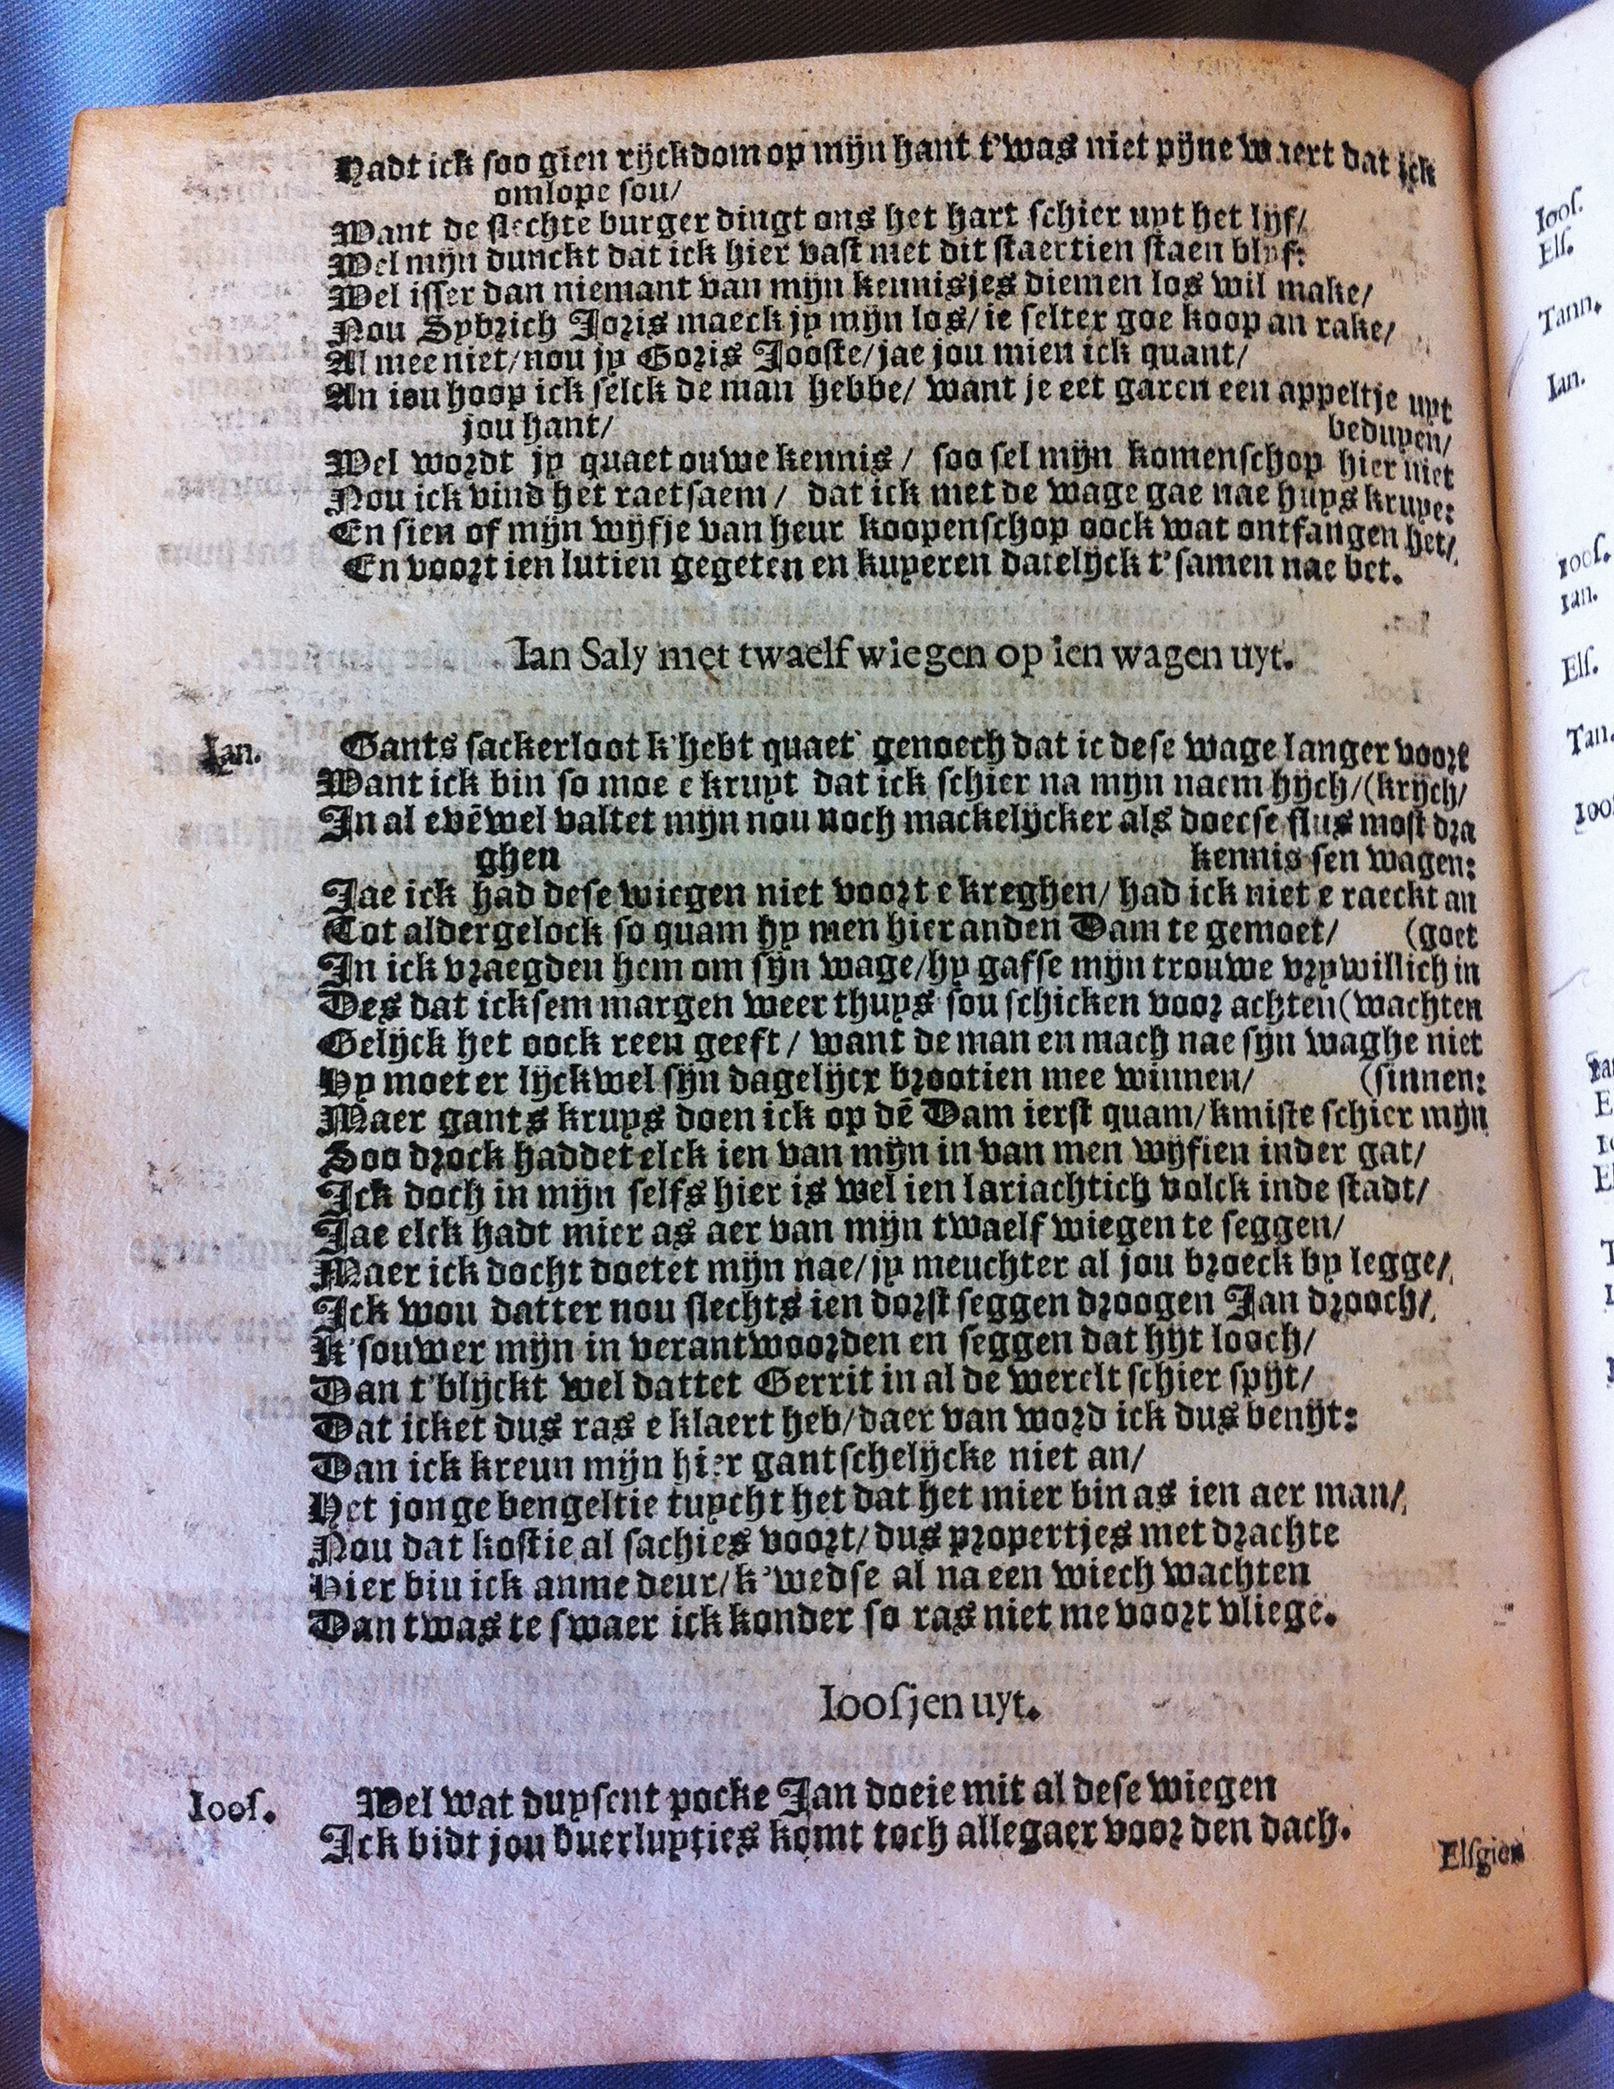 Hadt ick soo gien rijckdom op mijn hant t'was niet pijne waert dat ick
omlope sou/
Want de slechte burger dingt ons het hart schier uyt het lijf/
Wel mijn dunckt dat ick hier vast met dit staertien staen blijf:
Wel isser dan niemant van mijn kennisjes diemen los wil make/
Nou Sybrich Joris maeck jy mijn los/ ie selter goe koop an rake/
Al mee niet/ nou jy Goris Jooste/ jae jou mien ick quant/
An iou hoop ick selck de man hebbe/ want je eet garen een appeltje uyt
jou hant/ beduyen/
Wel wordt jy quaet ouwe kennis/ soo sel mijn komenschop hier niet
Nou ick vind het raetsaem/ dat ick met de wage gae nae huys kruye:
En sien of mijn wijfje van heur koopenschop oock wat ontfangen het/
En voort ien lutien gegeten en kuyeren datelijck t'samen nae bet.
Ian Saly met twaelf wiegen op ien wagen uyt.
Ian. Gants sackerloot k'hebt quaet genoech dat ic dese wage langer voort
Want ick bin so moe e kruyt dat ick schier na mijn naem hijch/ (krijch/
In al evēwel valtet mijn nou noch mackelijcker als doecse flus most dra
ghen kennis sen wagen:
Jae ick had dese wiegen niet voort e kreghen/ had ick niet e raeckt an
Tot aldergelock so quam hy men hier anden Dam te gemoet/ (goet
In ick vraegden hem om sijn wage/ hy gafse mijn trouwe vrywillich in
Des dat icksem margen weer thuys sou schicken voor achten (wachten
Gelijck het oock reen geeft/ want de man en mach nae sijn waghe niet
Hy moet er lijckwel sijn dagelijcx brootien mee winnen/ (sinnen:
Maer gants kruys doen ick op dē Dam ierst quam/ kmiste schier mijn
Soo drock haddet elck ien van mijn in van men wijfien inder gat/
Ick doch in mijn selfs hier is wel ien lariachtich volck inde stadt/
Jae elck hadt mier as aer van mijn twaelf wiegen te seggen/
Maer ick docht doetet mijn nae/ jy meuchter al jou broeck by legge/
Ick wou datter nou slechts ien dorst seggen droogen Jan drooch/
K'souwer mijn in verantwoorden en seggen dat hijt looch/
Dan t'blijckt wel dattet Gerrit in al de werelt schier spijt/
Dat icket dus ras e klaert heb/ daer van word ick dus benijt:
Dan ick kreun mijn hier gantschelijcke niet an/
Het jonge bengeltie tuycht het dat het mier bin as ien aer man/
Nou dat kostie al sachies voort/ dus propertjes met drachte
Hier bin ick anme deur/ k'wedse al na een wiech wachten
Dan twas te swaer ick konder so ras niet me voort vliege.
Ioosjen uyt.
Ioos. Wel wat duysent pocke Jan doeie mit al dese wiegen
Ick bidt jou buerluyties komt toch allegaer voor den dach.
Elsgien
Ioos.
Els.
Tann.
Ian.
Ioos.
Ian.
Els.
Tan.